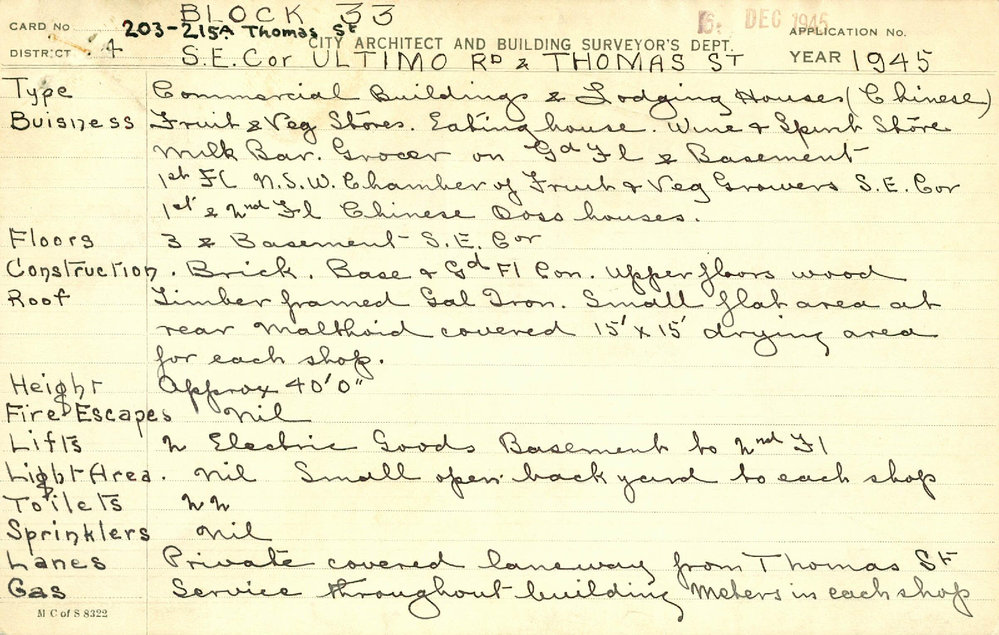 BLOCK 33
6. DEC 1945
CARD No 203-215A Thomas St APPLICATION No.
CITY ARCHITECT AND BUILDING SURVEYOR'S DEPT.
DISTRICT 4 S.E. Cor ULTIMO RD & THOMAS ST YEAR 1945
Type Commercial Buildings & Lodging Houses (Chinese)
Buisness Fruit & Veg Stores. Eating house. Wine & Spirit Store
Milk Bar. Grocer on Gd Fl & Basement
1st Fl N.S.W. Chamber of Fruit & Veg Growers S.E. Cor
1st & 2nd Fl Chinese Doss houses.
Floors 3 & Basement S.E. Cor
Construction. Brick. Base & Gd Fl Con. Upper floors wood
Roof Timber framed Gal Iron. Small flat area at
rear Malthoid covered 15' x 15' drying area
for each shop.
Height Approx 40'0"
Fire Escapes Nil
Lifts 2 Electric Goods Basement to 2nd Fl
Light Area. Nil Small open back yard to each shop
Toilets 22
Sprinklers Nil
Lanes Private covered laneway from Thomas St
Gas Service throughout building Meters in each shop
M C of S 8322